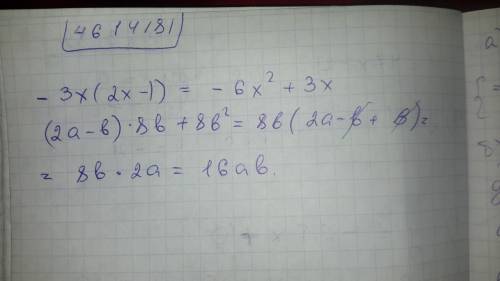 4614181
- 3x(2x-1) = - 6x² + 3x
(2a-b)·8b + 8b² = 8b(2a-b+b)=
= 8b·2a = 16ab.